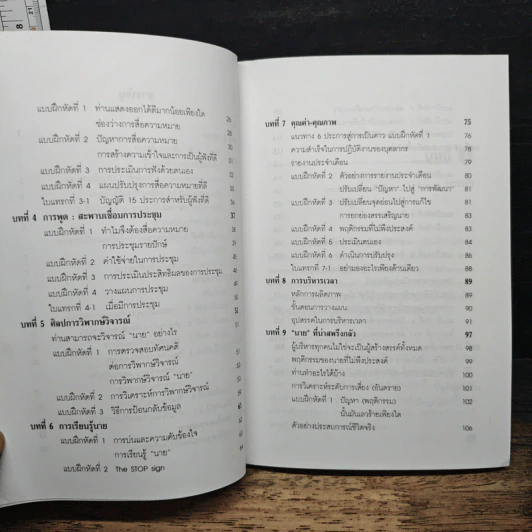 แบบฝึกหัดที่ 1 ท่านแสดงออกได้ดีมากน้อยเพียงใด
ช่องว่างการสื่อความหมาย 26
แบบฝึกหัดที่ 2 ปัญหาการสื่อความหมาย
การสร้างความเข้าใจและการเป็นผู้ฟังที่ดี
แบบฝึกหัดที่ 3 การประเมินการฟังด้วยตนเอง
แบบฝึกหัดที่ 4 แผนปรับปรุงการสื่อความหมายที่ดี
ใบแทรกที่ 3-1 บัญญัติ 15 ประการสำหรับผู้ฟังที่ดี
บทที่ 4 การพูด : สะพานเชื่อมการประชุม 37
แบบฝึกหัดที่ 1 ทำไมจึงต้องสื่อความหมาย
การประชุมรายปักษ์
แบบฝึกหัดที่ 2 ค่าใช้จ่ายในการประชุม
แบบฝึกหัดที่ 3 การประเมินประสิทธิผลของการประชุม
แบบฝึกหัดที่ 4 วางแผนการประชุม
ใบแทรกที่ 4-1 เมื่อมีการประชุม
บทที่ 5 ศิลปการวิพากษ์วิจารณ์
ท่านสามารถจะวิจารณ์ "นาย" อย่างไร
แบบฝึกหัดที่ 1 การตรวจสอบทัศนคติ
ต่อการวิพากษ์วิจารณ์
การวิพากษ์วิจารณ์ "นาย"
แบบฝึกหัดที่ 2 การวิเคราะห์การวิพากษ์วิจารณ์
แบบฝึกหัดที่ 3 วิธีการป้อนกลับข้อมูล
บทที่ 6 การเรียนรู้นาย
แบบฝึกหัดที่ 1 การบ่นและความคับข้องใจ
การเรียนรู้ "นาย"
แบบฝึกหัดที่ 2 The STOP sign
บทที่ 7 คุณค่า-คุณภาพ 75
แนวทาง 6 ประการสู่การเป็นดาว แบบฝึกหัดที่ 1 76
ความสำเร็จในการปฏิบัติงานของบุคลากร 78
รายงานประจำเดือน 79
แบบฝึกหัดที่ 2 ตัวอย่างการรายงานประจำเดือน 80
ปรับเปลี่ยน "ปัญหา" ไปสู่ "การพัฒนา" 81
แบบฝึกหัดที่ 3 ปรับเปลี่ยนจุดอ่อนไปสู่การแก้ไข 82
การยกย่องสรรเสริญนาย 83
แบบฝึกหัดที่ 4 พฤติกรรมที่ไม่พึงประสงค์ 84
แบบฝึกหัดที่ 5 ประเมินตนเอง 85
แบบฝึกหัดที่ 6 ดำเนินการปรับปรุง 86
ใบแทรกที่ 7-1 อย่ามองอะไรเพียงด้านเดียว 87
บทที่ 8 การบริหารเวลา 89
หลักการผลิตภาพ 89
ขั้นตอนการวางแผน 90
อุปสรรคในการบริหารเวลา 91
บทที่ 9 "นาย" ที่น่าสพรึงกลัว 97
ผู้บริหารทุกคนไม่ใช่จะเป็นผู้สร้างสรรค์ทั้งหมด 98
พฤติกรรมของนายที่ไม่พึงประสงค์ 99
ท่านทำอะไรได้บ้าง 100
การวิเคราะห์ระดับการเสี่ยง (อันตราย) 101
แบบฝึกหัดที่ 1 ปัญหา (พฤติกรรม) 102
นั้นมันเลวร้ายเพียงใด
ตัวอย่างประสบการณ์ชีวิตจริง 106